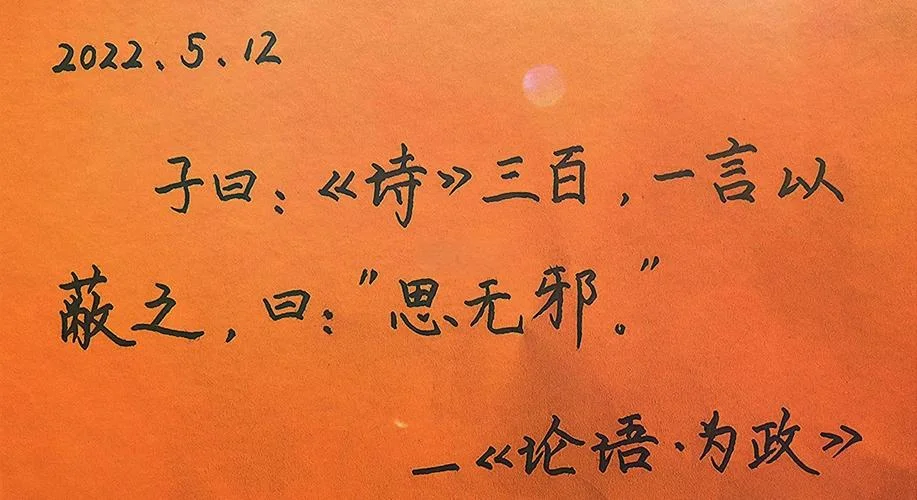 2022.5.12
子曰：《诗》三百，一言以
蔽之，曰："思无邪。"
—《论语·为政》